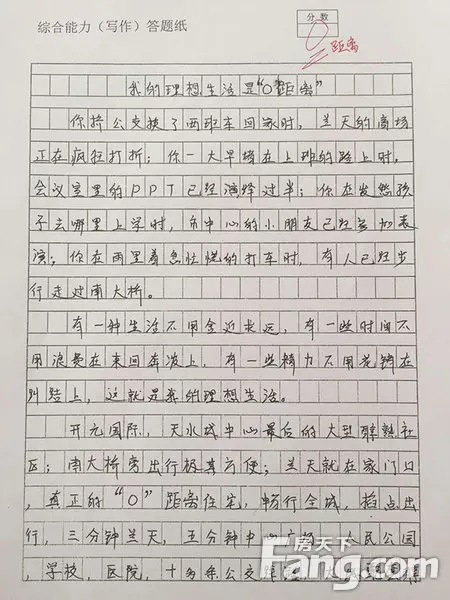 综合能力（写作）答题纸
分数
0
距离
我的理想生活是“0”距离”
你挤公交换了两班车回家时，兰天的商场
正在疯狂打折；你一大早堵在上班的路上时，
会议室里的PPT已经演绎过半；你在发愁孩
子去哪里上学时，市中心的小朋友已经参加表
演；你在雨里着急忙慌的打车时，有人已经步
行走过南大桥。
有一种生活不用舍近求远，有一些时间不
用浪费在来回奔波上，有一些精力不用花销在
纠结上，这就是我的理想生活。
开元国际，天水城中心最后的大型醇熟社
区；南大桥旁出行极其方便；兰天就在家门口
，真正的“0”距离住宅，畅行全城，指点出
行，三分钟兰天，五分钟中心广场、人民公园
，学校，医院，十多条公交
房天下
Fang.com